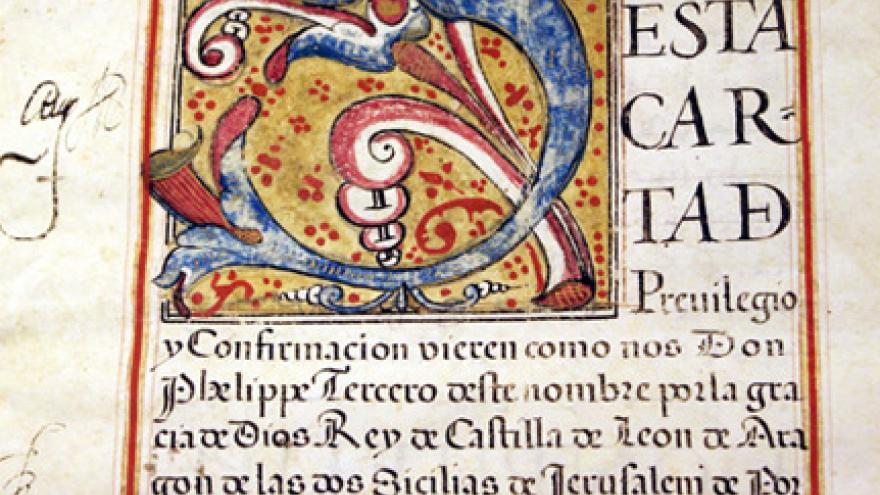 ESTA
CAR-
TA DE
Preuilegio
y Confirmacion vieren como nos Don
Phelippe Tercero deste nombre por la gra
cia de Dios Rey de Castilla de Leon de Ara
gon de las dos Sicilias de Jerusalem de Por